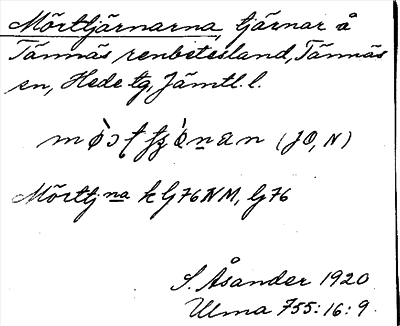 Mörttjärnarna, tjärnar å
Tännäs renbetesland, Tännäs
sn, Hede tg, Jämtl. l.
(JO, N)
Mörttj na k G76NM, G76
S. Åsander 1920
Ulma 755:16:9.